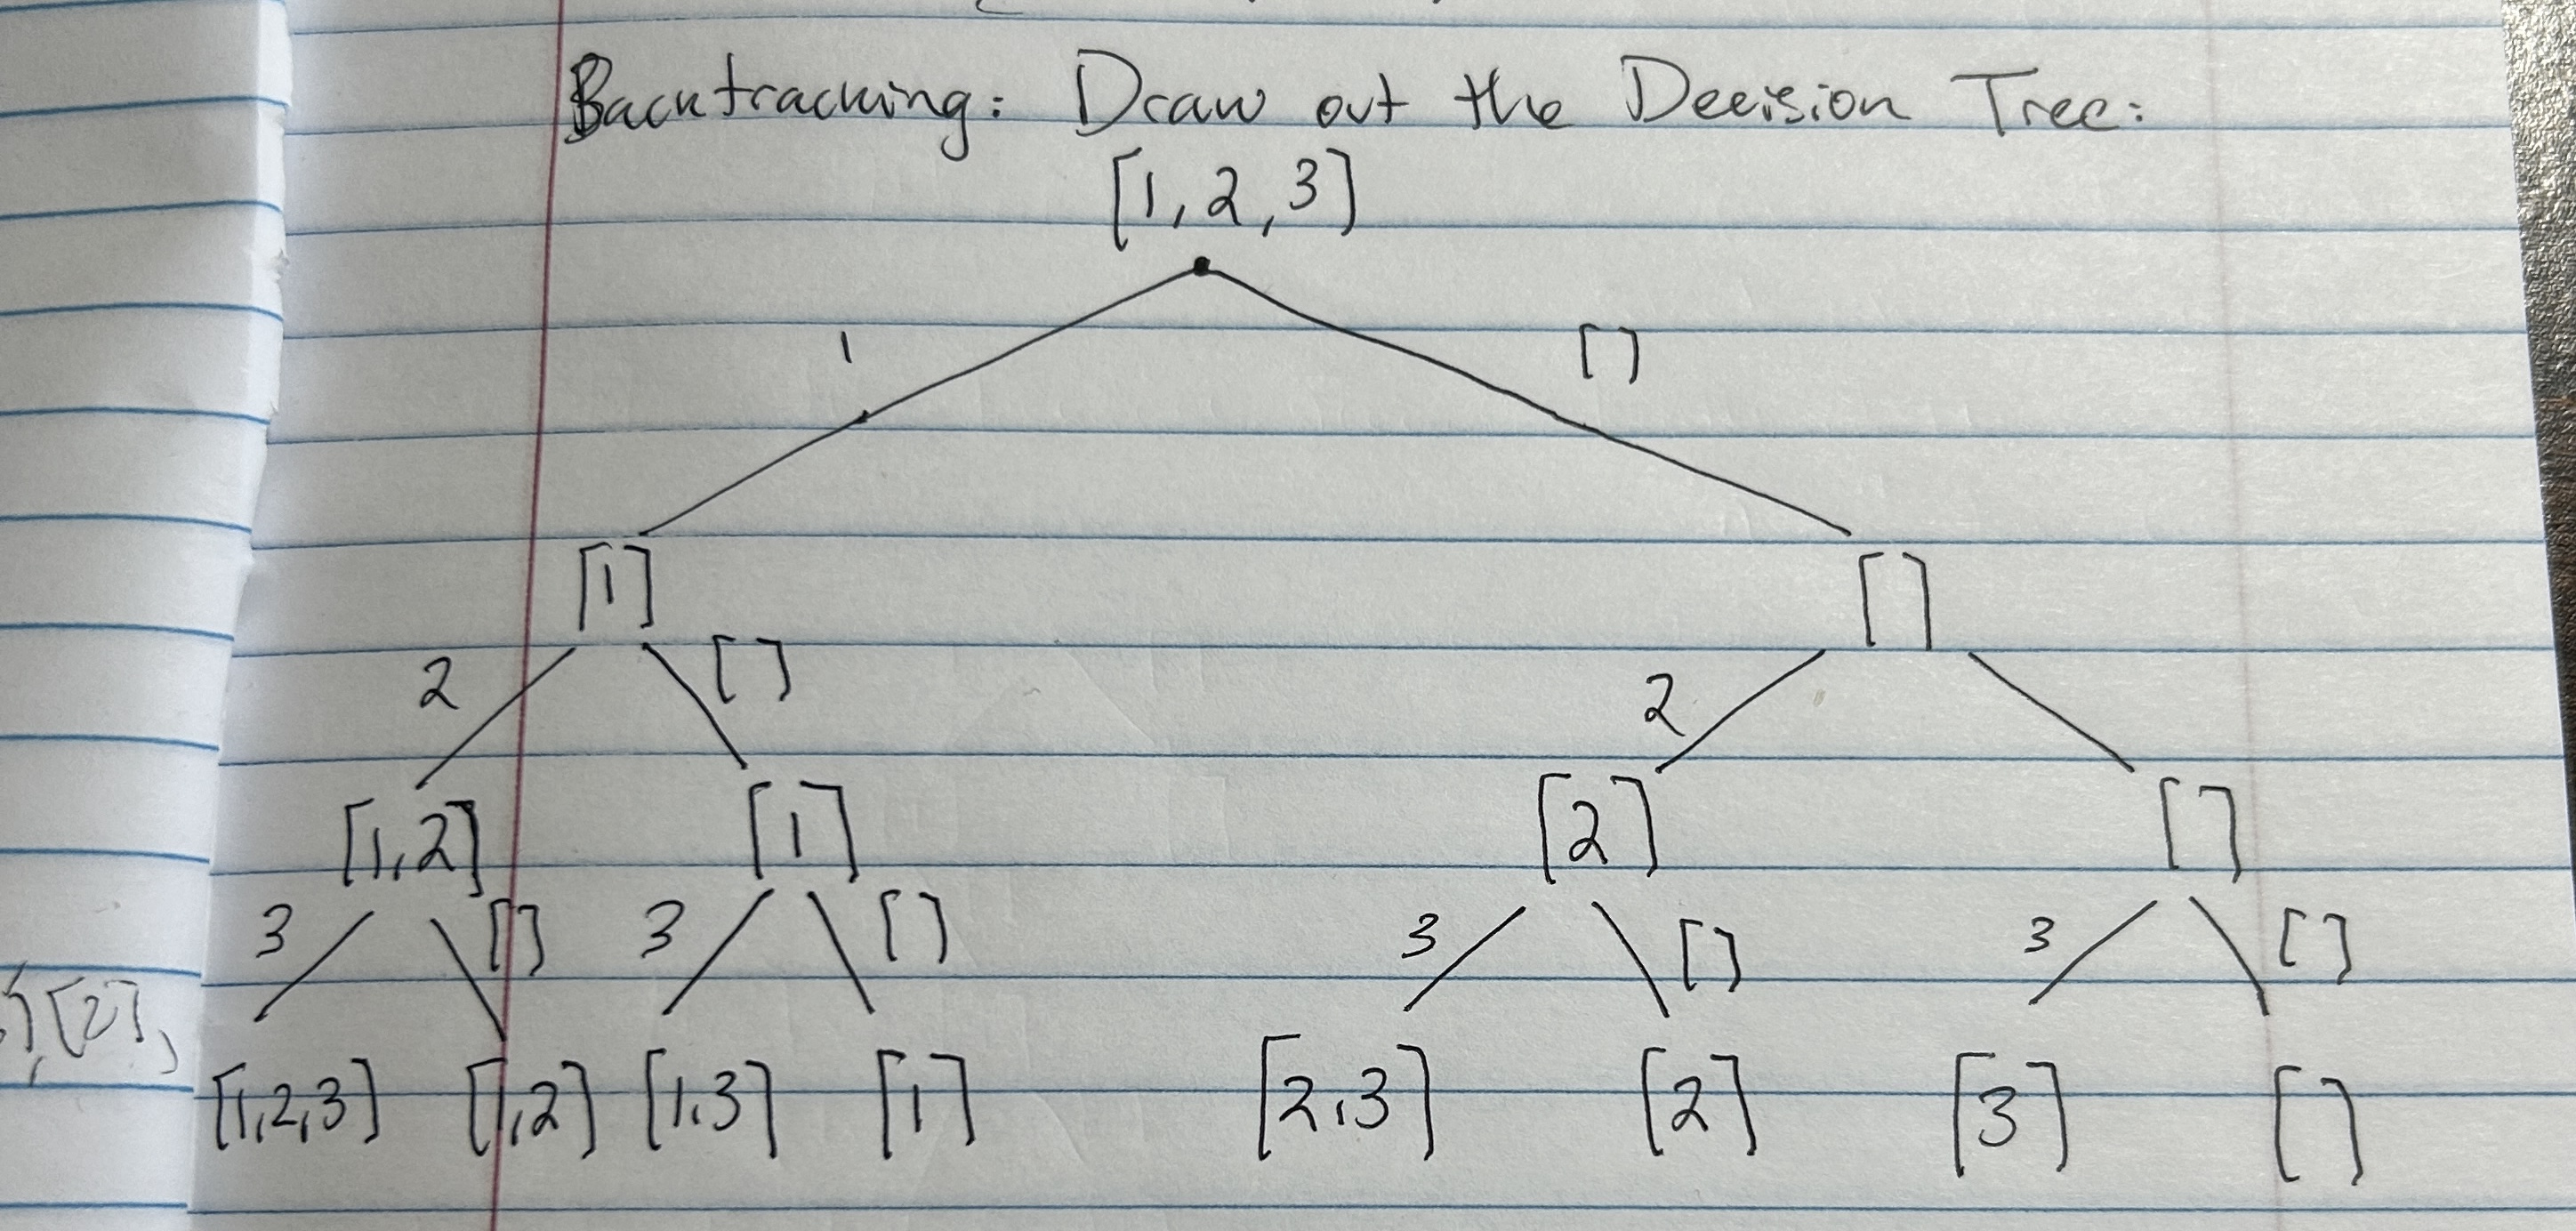 Backtracking: Draw out the Decision Tree:
[1, 2, 3]
1 []
[1] []
2 [] 2
[1,2] [1] [2] []
3 [] 3 [] 3 [] 3 []
[2],
[1,2,3] [1,2] [1,3] [1] [2,3] [2] [3] []